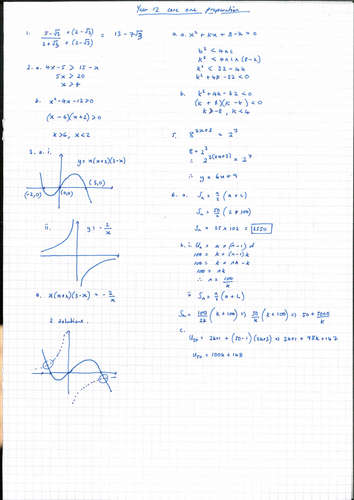 Year 12 core one preparation
1. 5-√3/2+√3 × (2-√3)/(2-√3) = 13-7√3
2. a. 4x-5 > 15-x
5x > 20
x > 4
b. x²-4x-12>0
(x-6)(x+2)>0
x>6, x<2
3. a. i.
y = x(x+2)(3-x)
(-2,0) (0,0) (3,0)
ii.
y = -2/x
b. x(x+2)(3-x) = -2/x
2 solutions.
4. a. x² + kx + 8-k = 0
b² < 4ac
k² < 4×1×(8-k)
k² < 32-4k
k² + 4k - 32 < 0
b. k² + 4k - 32 < 0
(k+8)(k-4) < 0
k>-8, k<4
5. 8^(2x+3) = 2^y
8 = 2³
∴ 2^(3(2x+3)) = 2^y
∴ y = 6x+9
6. a. Sₙ = n/2 (a+L)
Sₙ = 50/2 (2+100)
Sₙ = 25 × 102 = 2550
b. i. Uₙ = a + (n-1)d
100 = k + (n-1)k
100 = k + nk - k
100 = nk
∴ n = 100/k
ii Sₙ = n/2 (a+L)
Sₙ = 100/2k (k+100) ⇒ 50/k (k+100) ⇒ 50 + 5000/k
c.
U₅₀ = 2k+1 + (50-1)(2k+3) ⇒ 2k+1 + 98k+147
U₅₀ = 100k+148